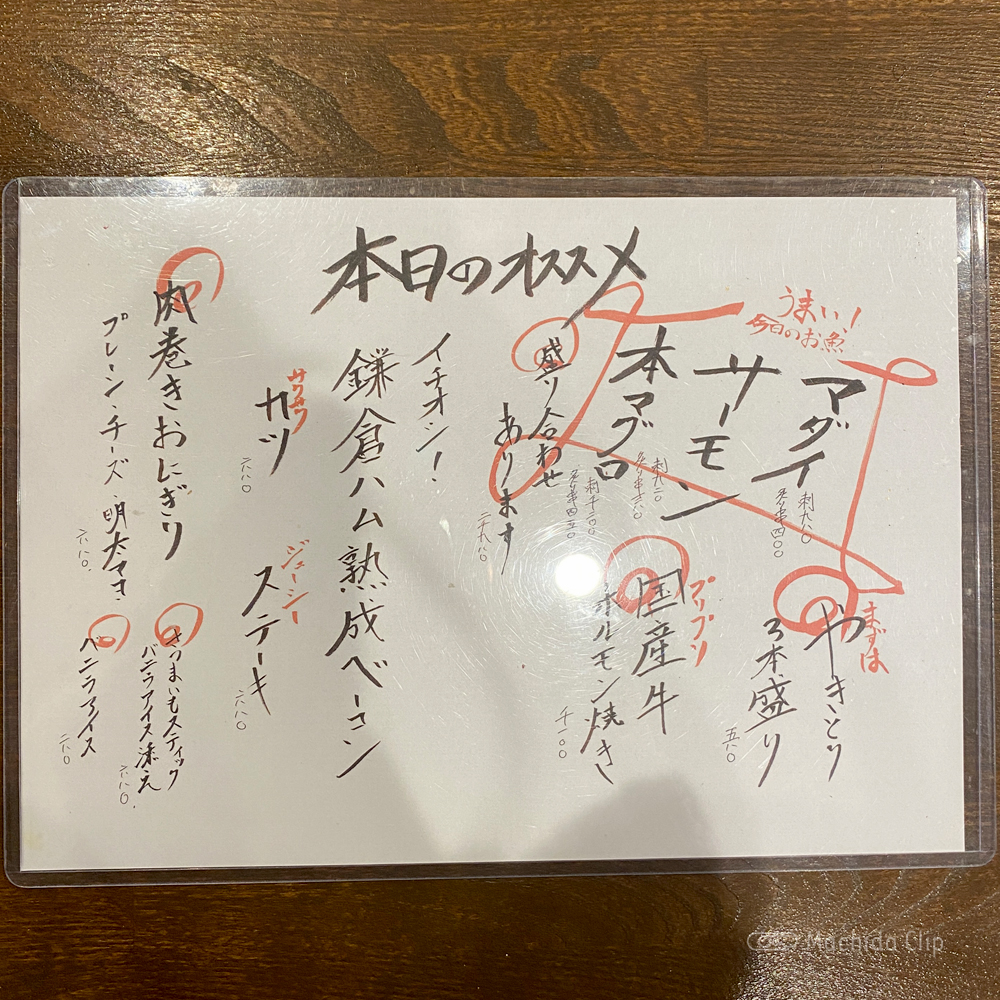 本日のオススメ
うまい!
今日のお魚
マダイ
刺九八〇
炙り串四〇〇
サーモン
刺九二〇
炙り串三六〇
本マグロ
刺千二〇〇
炙り串四五〇
盛り合わせ
あります
二千九八〇
まずは
やきとり
3本盛り
五八〇
プリプリ
国産牛
ホルモン焼き
千一〇〇
イチオシ!
鎌倉ハム熟成ベーコン
サクサク
カツ
六八〇
ジューシー
ステーキ
六八〇
肉巻きおにぎり
プレーン・チーズ・明太マヨ
六八〇.
さつまいもスティック
バニラアイス添え
六八〇.
バニラアイス
二八〇
Machida Clip